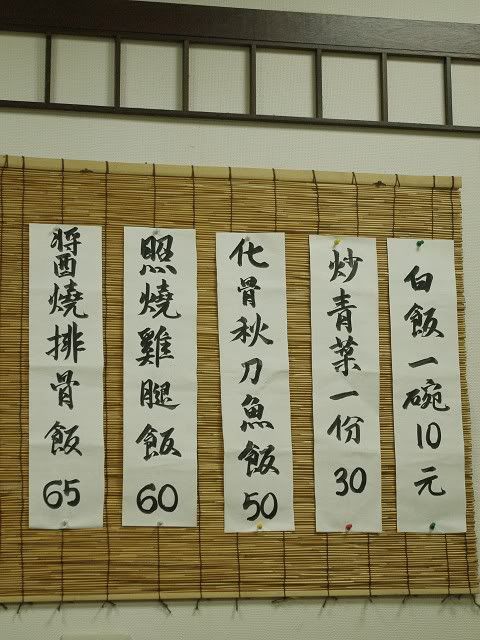 白飯一碗10元
炒青菜一份30
化骨秋刀魚飯50
照燒雞腿飯60
醬燒排骨飯65